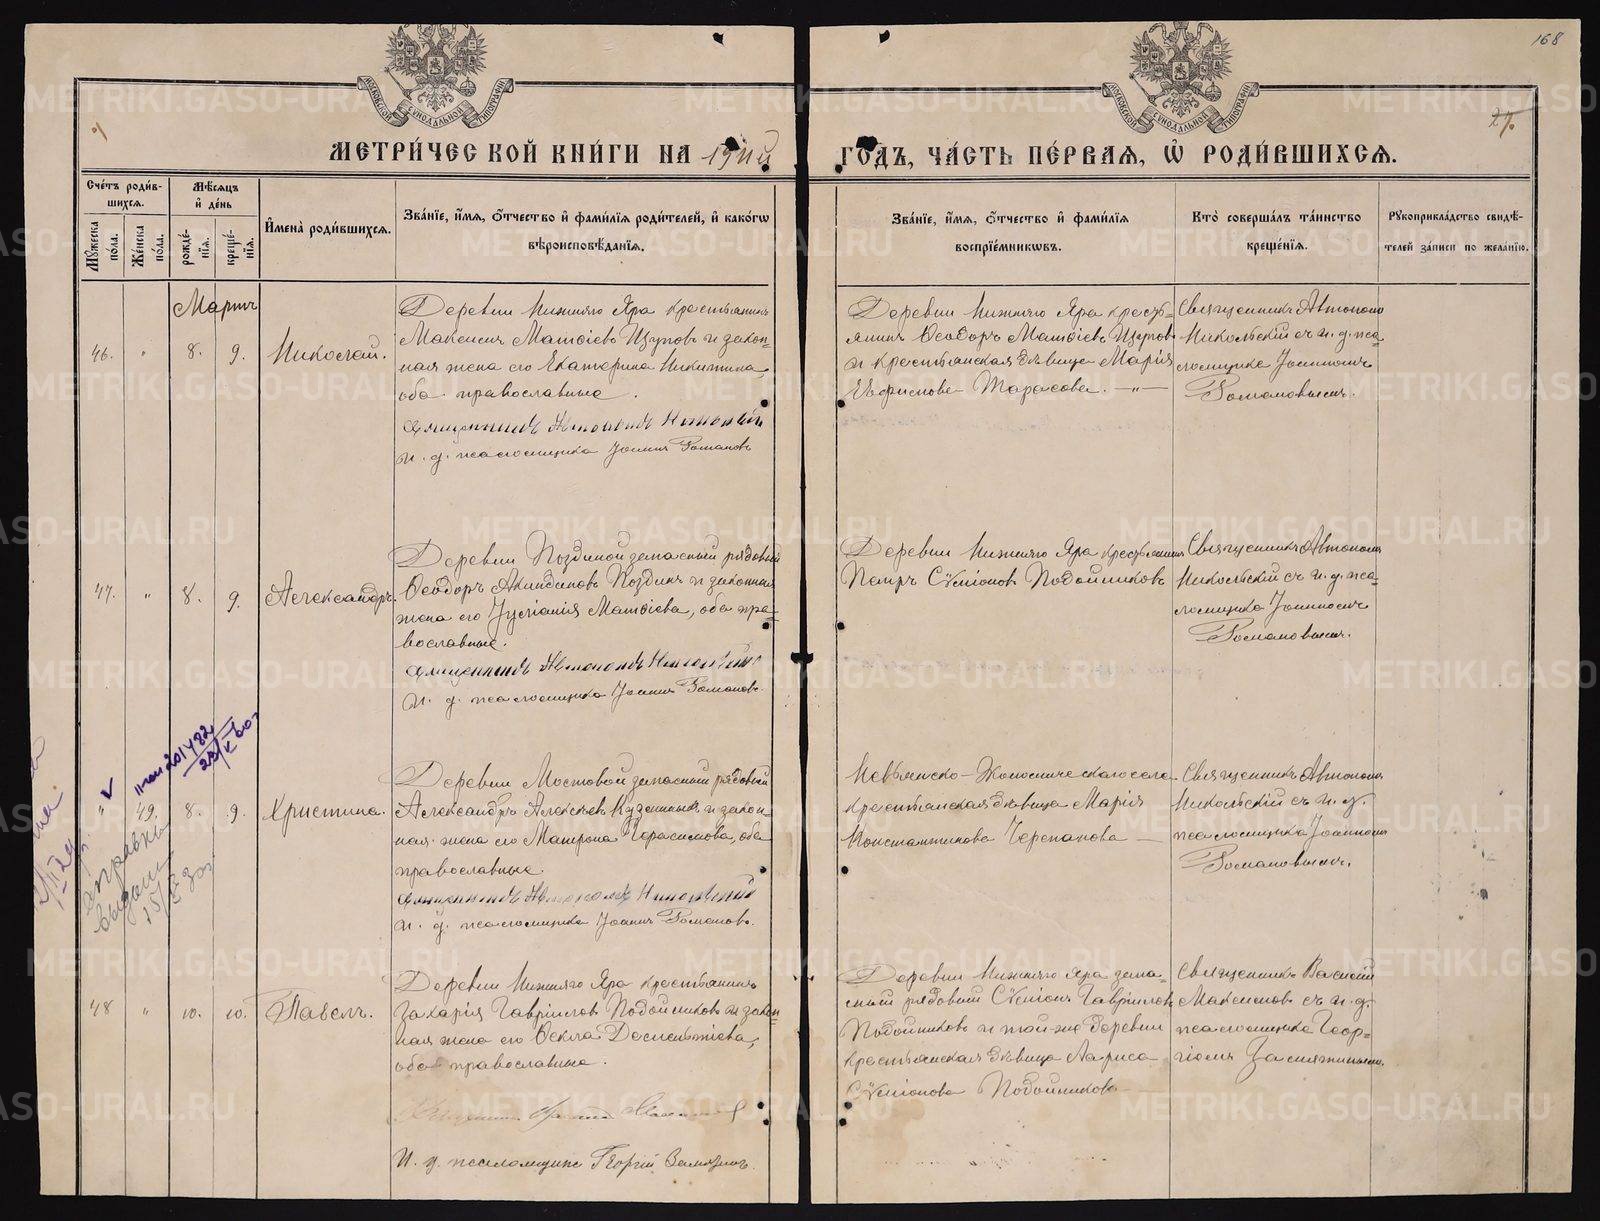 168
27.
МЕТРИ́ЧЕСКОЙ КНИ́ГИ НА 1911й ГО́ДЪ, ЧА́СТЬ ПЕ́РВАЯ, Ѡ҆ РОДИ́ВШИХСЯ.
Сче́тъ роди́в-
шихся.
Мꙋ́жеска по́ла.
Же́нска по́ла.
Мѣ́сяцъ
и҆ де́нь
рожде́-
нїя.
креще́-
нїя.
И҆мена̀ роди́вшихся.
Зва́нїе, и҆́мя, ѻ҆́тчество и҆ фами́лїя роди́телей, и҆ како́гѡ
вѣроисповѣ́данїя.
Зва́нїе, и҆́мя, ѻ҆́тчество и҆ фами́лїя
воспрїе́мникѡвъ.
Кто̀ соверша́лъ та́инство
креще́нїя.
Рꙋкоприкла́дство свидѣ́-
телей за́писи по жела́нїю.
Мартъ
46. " 8. 9. Николай.
Деревни Нижняго Яра крестьянинъ
Максимъ Матѳіевъ Щуповъ и закон-
ная жена его Екатерина Никитина,
оба православные.
Священникъ Автономъ Никольскій
и. д. псаломщика Іоаннъ Романовъ
Деревни Нижняго Яра кресть-
янинъ Ѳеодоръ Матѳіевъ Щуповъ
и крестьянская дѣвица Марія
Тарасова. — " —
Священникъ Автономъ
Никольскій съ и. д. пса-
ломщика Іоанномъ
Романовымъ.
47. " 8. 9. Александръ.
Деревни Поздиной запасный рядовый
Ѳеодоръ Акиндиновъ Поздинъ и законная
жена его Іуліанія Матѳіева, оба пра-
вославные.
Священникъ Автономъ Никольскій
и. д. псаломщика Іоаннъ Романовъ
Деревни Нижняго Яра крестьянинъ
Петръ Сѵмеоновъ Подойниковъ
Священникъ Автономъ
Никольскій съ и. д. пса-
ломщика Іоанномъ
Романовымъ.
" 49. 8. 9. Христина.
Деревни Мостовой запасный рядовый
Александръ Алексѣевъ Кузьминыхъ и закон-
ная жена его Матрона Герасимова, оба
православные.
Священникъ Автономъ Никольскій
и. д. псаломщика Іоаннъ Романовъ.
Невьянско-
крестьянская дѣвица Марія
Константинова Черепанова —
Священникъ Автономъ
Никольскій съ и. д.
псаломщика Іоанномъ
Романовымъ.
справка
выдана
48 " 10. 10. Павелъ.
Деревни Нижняго Яра крестьянинъ
Захарія Гавріиловъ Подойниковъ и закон-
ная жена его Ѳекла Дометіева,
оба православные.
И. д. псаломщика Георгій
Деревни Нижняго Яра запа-
сный рядовый Сѵмеонъ Гавріиловъ
Подойниковъ и той-же деревни
крестьянская дѣвица Лариса
Сѵмеонова Подойникова
Священникъ Василій
Максимовъ съ и. д.
псаломщика Геор-
гіемъ
METRIKI.GASO-URAL.RU